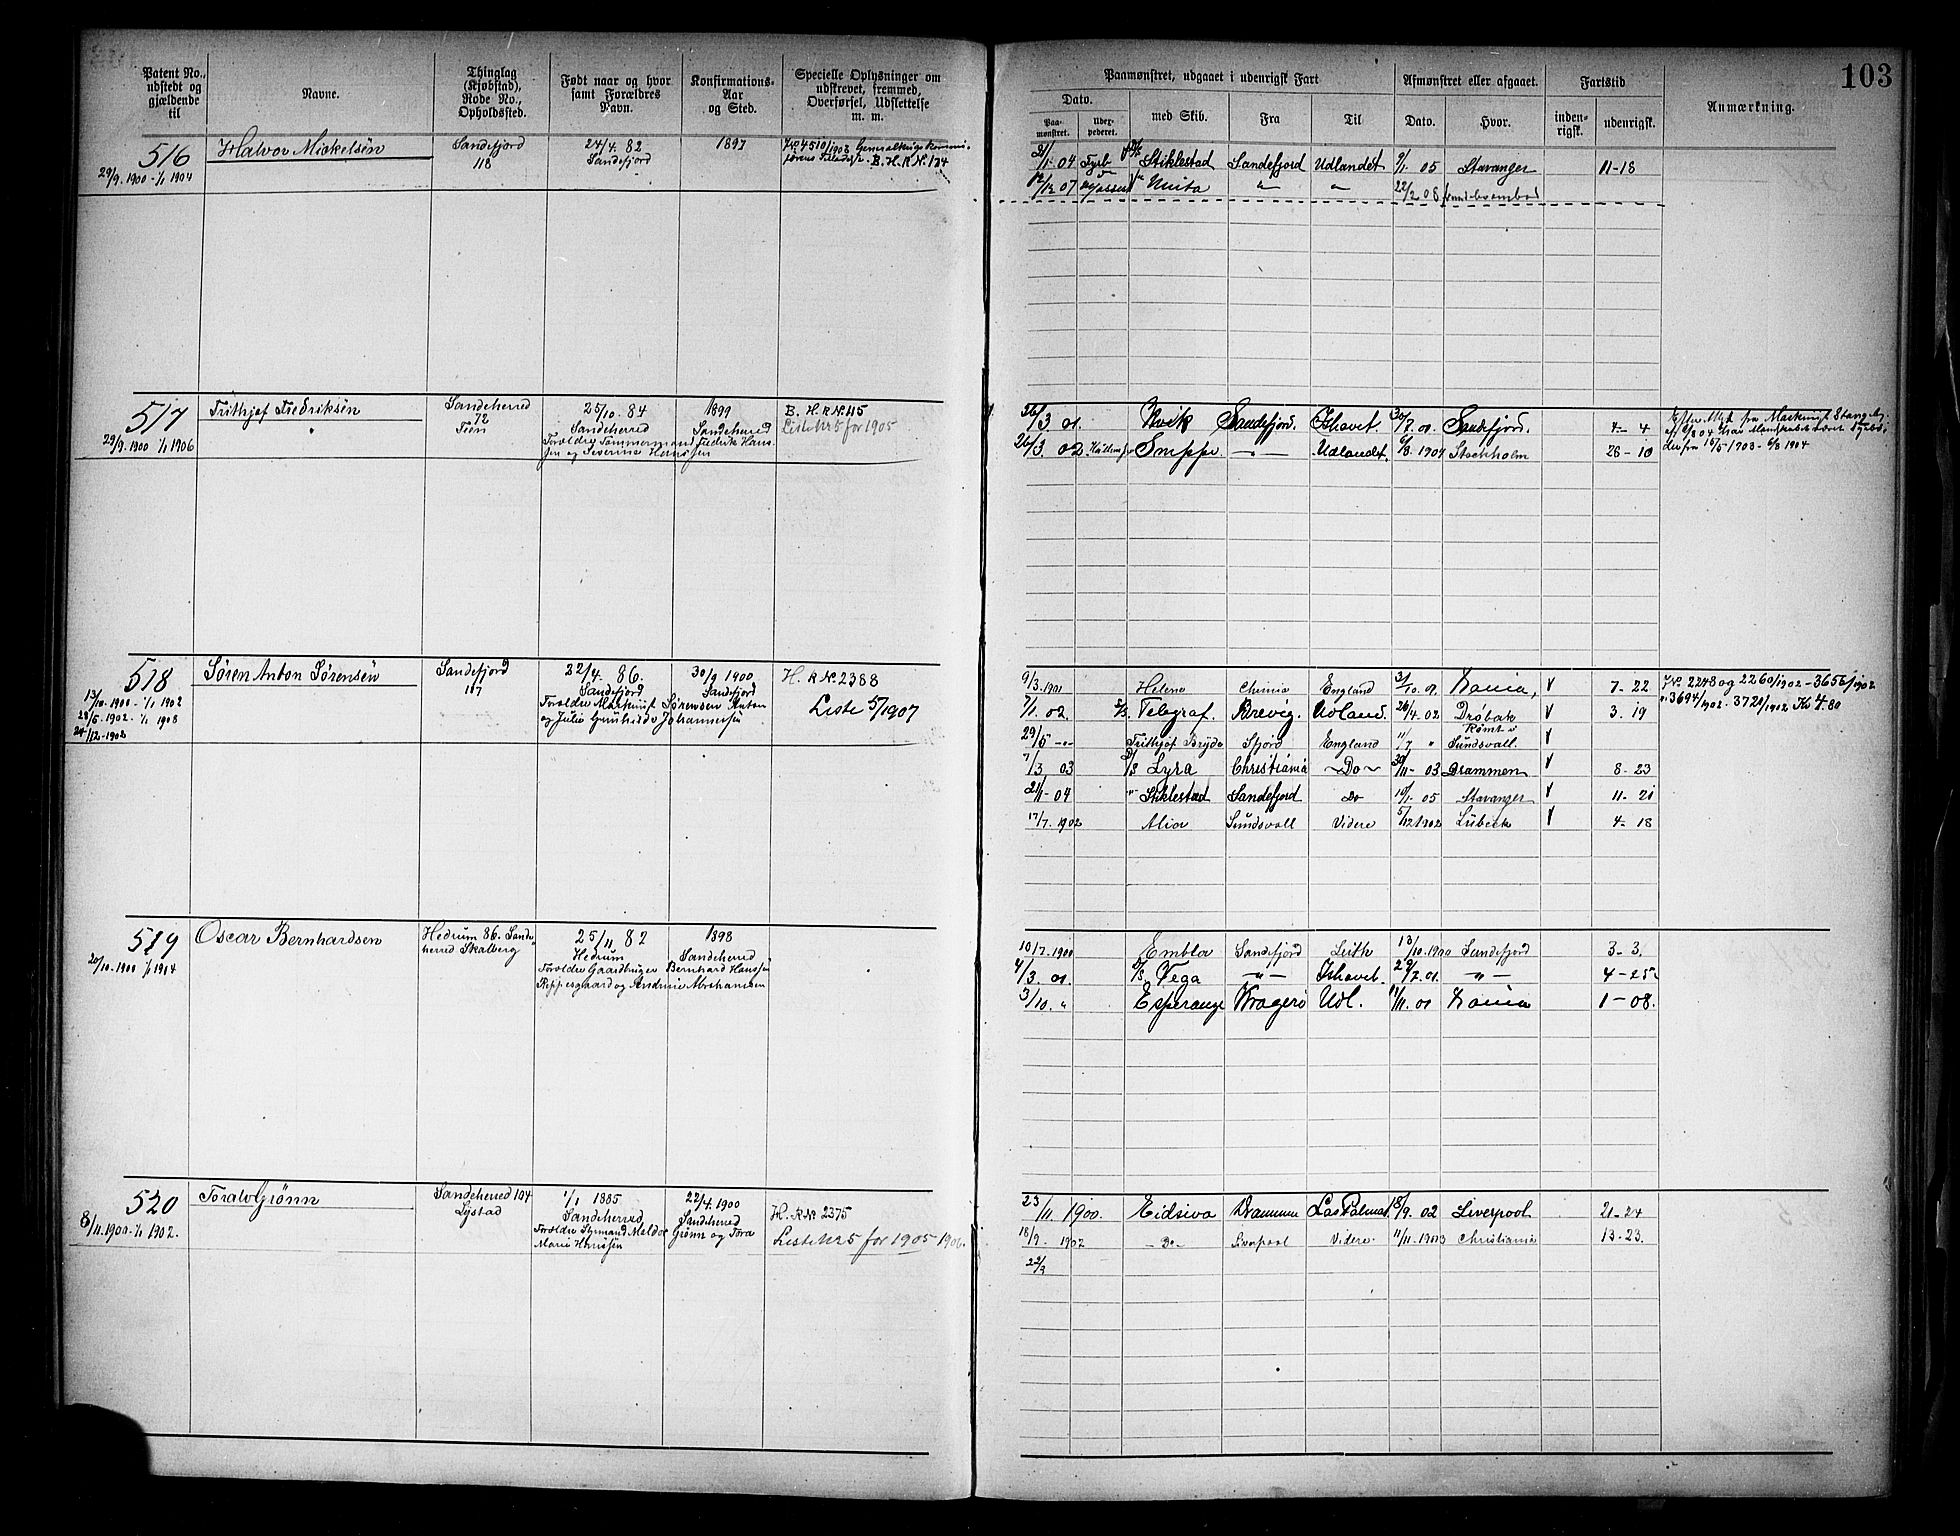 103
Patent No., udstedt og gjældende til
Navne.
Thinglag (Kjøbstad), Rode No., Opholdssted.
Født naar og hvor samt Forældres Navn.
Konfirmations-Aar og Sted.
Specielle Oplysninger om udskrevet, fremmed, Overførsel, Udslettelse m. m.
Paamønstret, udgaaet i udenrigsk Fart
Dato.
Paa-mønstret.
Udex-pederet.
med Skib.
Fra
Til
Afmønstret eller afgaaet.
Dato.
Hvor.
Fartstid
inden-rigsk.
udenrigsk.
Anmærkning.
516
29/9. 1900 - 1/1 1904
Halvor Mickelsen
Sandefjord
118
24/4. 82
Sandefjord
1897
B. H. R N. 134
2/1 04 Stiklestad Sandefjord Udlandet 9/1. 05 Stavanger 11-18
12/12 07 " " 22/2 08
517
29/9. 1900 1/1 1906
Frithjof Fredriksen
Sandeherred
72
25/10. 84
Sandeherred
Forældre Tømmermand Fredrik Han-
sen og Severine Hansen
1899
Sandeherred
B. H. R N. 115
Liste Nr 5 for 1905
26/3 01. Kvik Sandefjord. Ishavet. 30/7. 01. Sandefjord. 4 - 4
26/3. 02 Snippe - " - Udlandet. 6/8. 1904 Stockholm 26 - 10
518
13/10. 1900 - 1/1 1902
28/5. 1902. - 1/1 1908
24/12. 1902
Søren Anton Sørensen
Sandefjord
117
22/4. 86.
Sandefjord
Forældre Maskinist Sørensen Anton
og Julie Gunhilda Johannesen
30/9 1900
Sandefjord
H. R N. 2388
Liste 5/1907
9/3. 1901 Helene England 3/10. 01. V 7 - 22
7/1. 02. D/S. Telegraf. Brevig. Udland. 26/4. 02 Drøbak V 3. 19
29/5 -"- Frithjof Bryde Sfjord England 11/7 " Rømt i Sundsvall. V
7/3 03 D/S Lyra Christiania ~Do~ 30/11 - 03 Drammen V 8 - 23
21/1 - 04 "- Stiklestad Sandefjord Do 10/1 - 05 Stavanger V 11 - 21
17/7. 1902 Sundsvall Videre 5/12 1902 Lübeck V 4 - 18
No 2248 og 2260/1902 - 3656/1902
3694/1902. 3720/1902 Kr 4.80
519
20/10. 1900 1/1 1904
Oscar Bernhardsen
Hedrum 86. Sande-
herred Skalberg
25/11 82
Hedrum
Forældre Gaardbruger Bernhard Hansen
og Andrine Abrahamsen
1898
Sandeherred
10/7. 1900 Embla Sandefjord Leith 13/10. 1900 Sandefjord 3 - 3.
4/3. 01. D/S Vega - " - Ishavet. 29/7. 01. - " - 4 - 25
3/10. " Esperange Kragerø Udl. 11/11. 01 1 - 08.
520
8/11. 1900 - 1/1 1902.
Toralv Grønn
Sandeherred 104
Lystad
1/1 1885
Sandeherred,
Marie Hansen
22/4. 1900
Sandeherred
H. R N. 2375
Liste Nr 5 for 1905 1906.
23/11 1900. Eidsiva Drammen Las Palmas 18/9. 02 Liverpool 21 - 24
18/9. 1902 - Do - Liverpool Videre 11/11. 1903 Christiania 13 - 23.
22/3